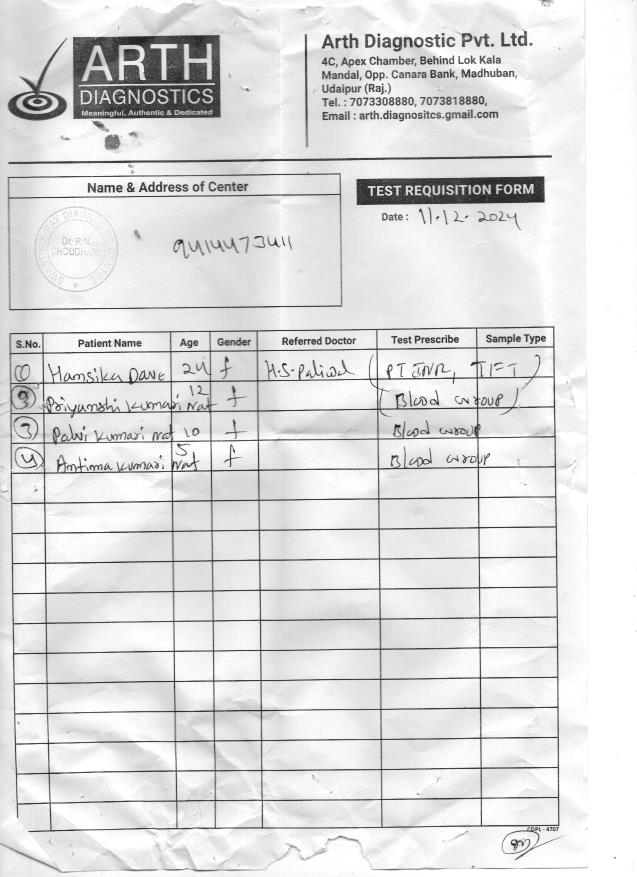 ARTH
DIAGNOSTICS
Meaningful, Authentic & Dedicated
Arth Diagnostic Pvt. Ltd.
4C, Apex Chamber, Behind Lok Kala
Mandal, Opp. Canara Bank, Madhuban,
Udaipur (Raj.)
Tel. : 7073308880, 7073818880,
Email : arth.diagnositcs.gmail.com
Name & Address of Center
Dr. R.N.
CHOUDHARY
9414473411
TEST REQUISITION FORM
Date : 11.12.2024
S.No. Patient Name Age Gender Referred Doctor Test Prescribe Sample Type
1 Hamsika Dave 24 f H.S. Paliwal (PT INR, TFT)
2 Priyanshi Kumari Nat 12 f (Blood Group)
3 Palvi Kumari Nat 10 f Blood Group
4 Antima Kumari Nat 5 f Blood Group
CDPL - 4707